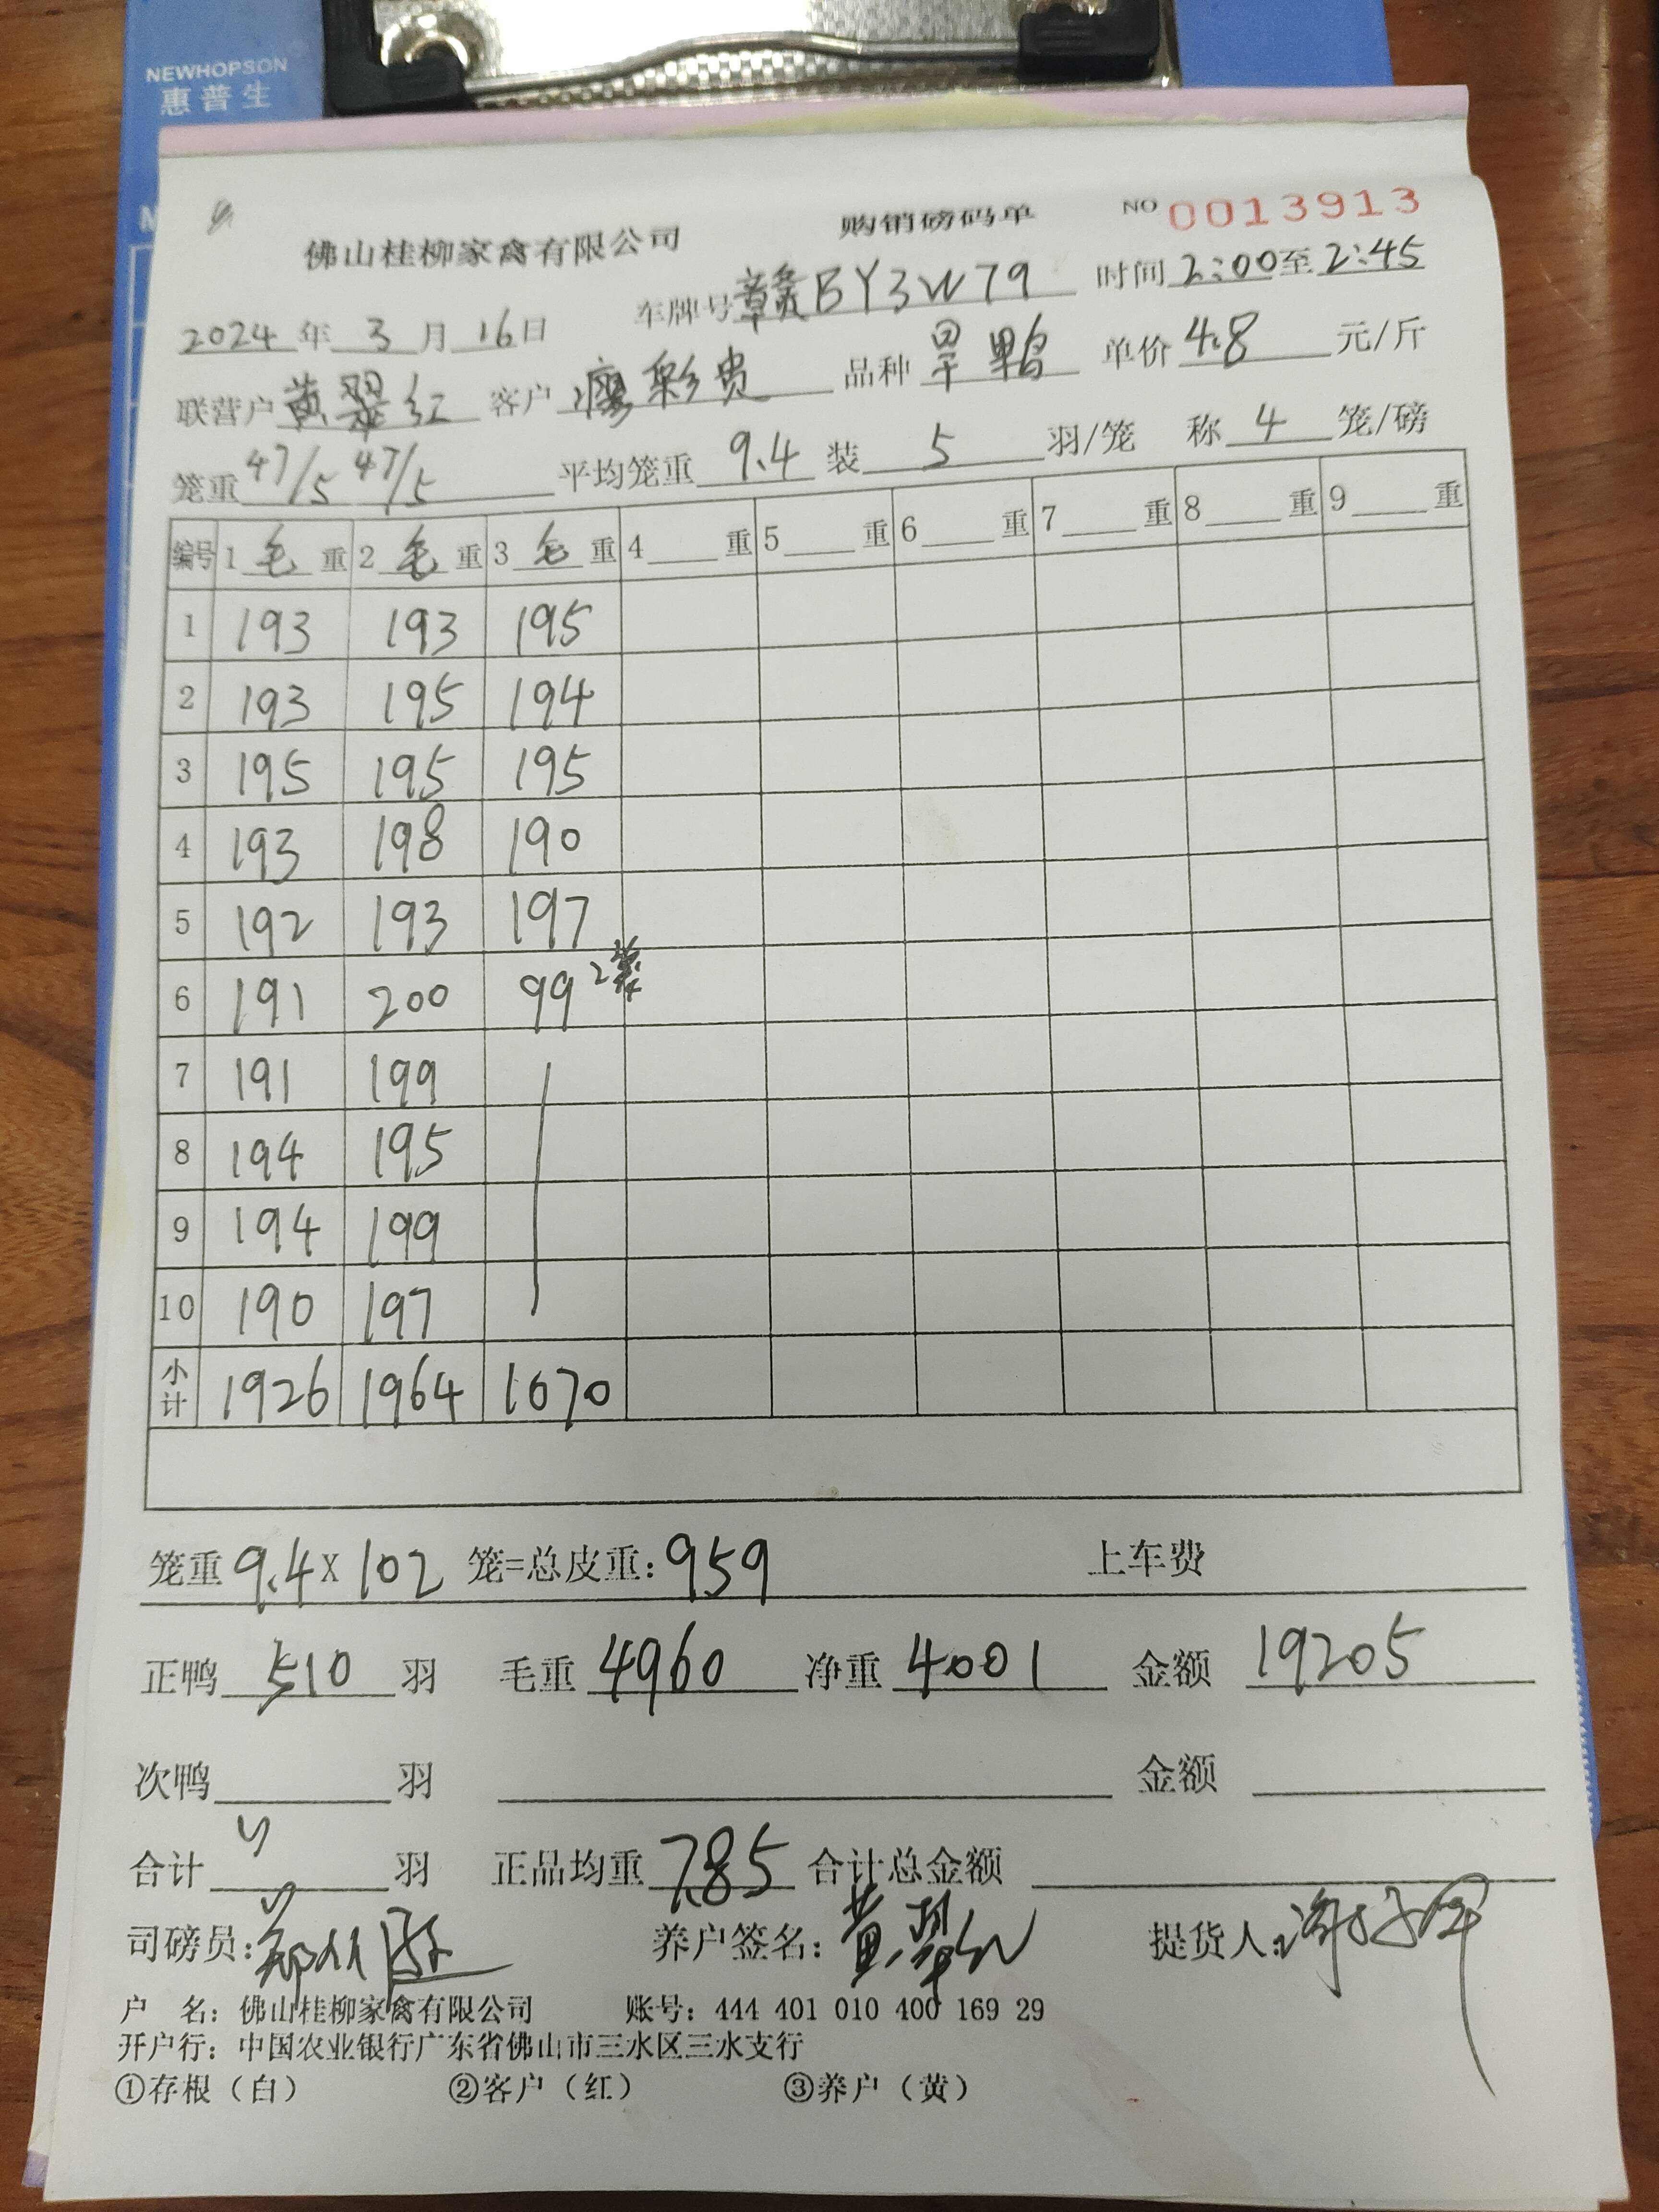 NEWHOPSON
惠普生
佛山桂柳家禽有限公司 购销磅码单 NO 0013913
2024年3月16日 车牌号赣BY3W79 时间2:00至2:45
联营户黄翠红 客户廖彩贵 品种旱鸭 单价4.8元/斤
笼重47/5 47/5 平均笼重9.4 装5羽/笼 称4笼/磅
编号 1毛重 2毛重 3毛重 4重 5重 6重 7重 8重 9重
1 193 193 195
2 193 195 194
3 195 195 195
4 193 198 190
5 192 193 197
6 191 200 99 2笼
7 191 199
8 194 195
9 194 199
10 190 197
小计 1926 1964 1070
笼重9.4x102 笼=总皮重:959 上车费
正鸭510羽 毛重4960 净重4001 金额19205
次鸭 羽 金额
合计 羽 正品均重7.85 合计总金额
司磅员: 养户签名:黄翠红 提货人:
户 名:佛山桂柳家禽有限公司 账号:444 401 010 400 169 29
开户行:中国农业银行广东省佛山市三水区三水支行
①存根（白） ②客户（红） ③养户（黄）